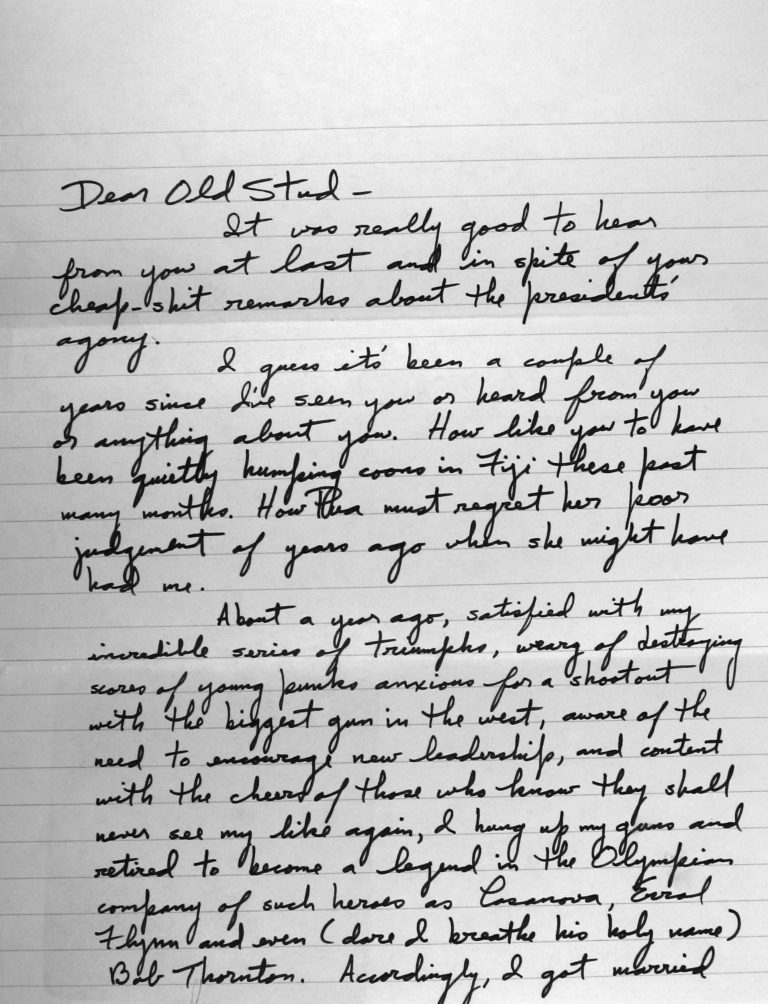 Dear Old Stud -
It was really good to hear
from you at last and in spite of your
cheap-shit remarks about the presidents'
agony.
I guess it's been a couple of
years since I've seen you or heard from you
or anything about you. How like you to have
been quietly humping coons in Fiji these past
many months. How Thea must regret her poor
judgement of years ago when she might have
had me.
About a year ago, satisfied with my
incredible series of triumphs, weary of destroying
scores of young punks anxious for a shootout
with the biggest gun in the west, aware of the
need to encourage new leadership, and content
with the cheers of those who know they shall
never see my like again, I hung up my guns and
retired to become a legend in the Olympian
company of such heroes as Casanova, Errol
Flynn and even (dare I breathe his holy name)
Bob Thornton. Accordingly, I got married